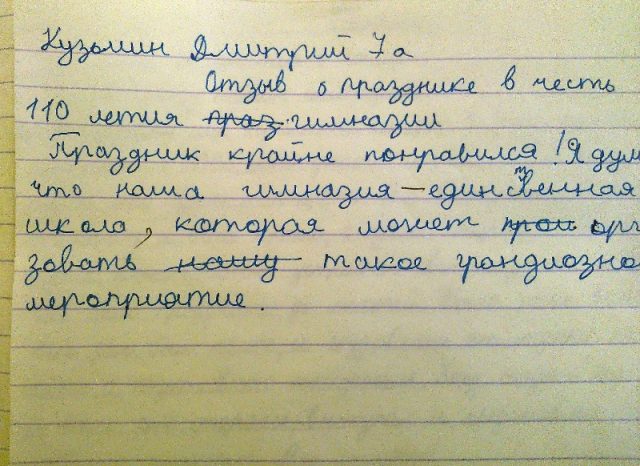 Кузьмин Дмитрий 7а
Отзыв о празднике в честь
110 летия праз гимназии
Праздник крайне понравился! Я дум
что наша гимназия — единственная
школа, которая может орг
зовать нашу такое грандиозно
мероприятие.